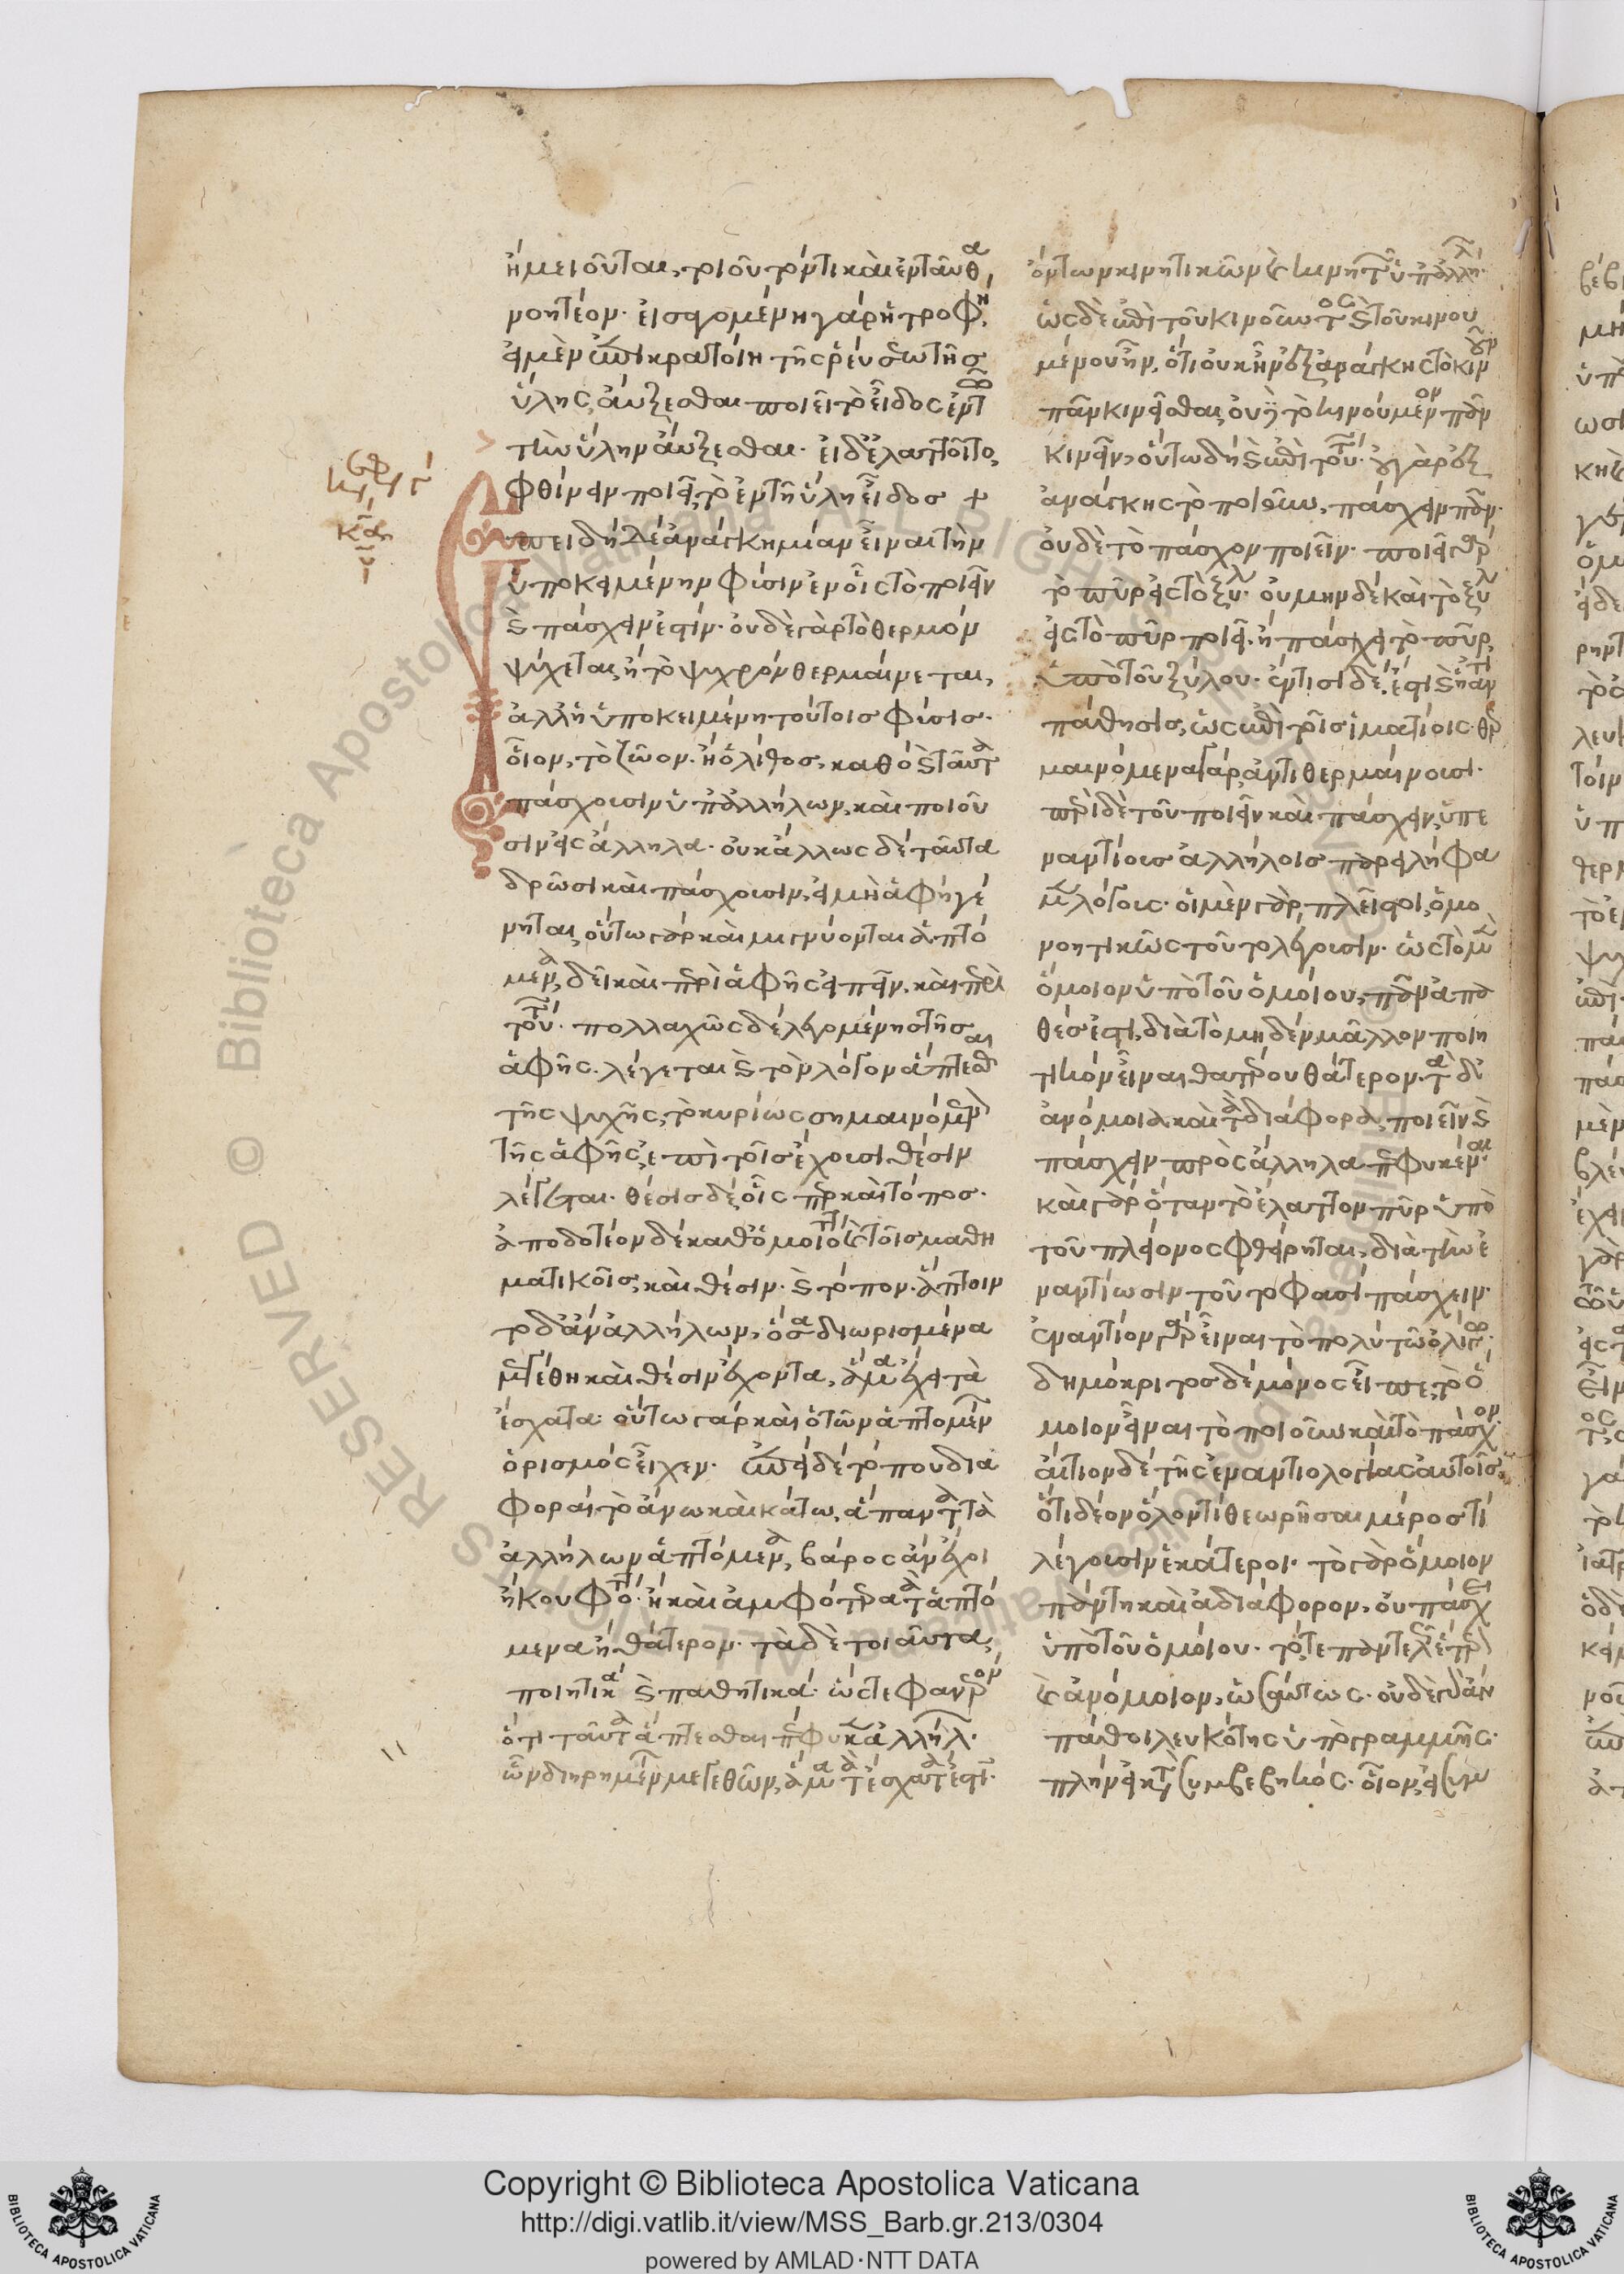 ἢ μειοῦται, τοιοῦτόν τι καὶ ἐνταῦθα
νοητέον· εἰσφομένη γὰρ ἡ τροφὴ,
εἰ μὲν ἐπικρατοίη τῆς ῥευσάσης
ὕλης αὔξεσθαι ποιεῖ τὸ εἶδος
τὴν ὕλην αὔξεσθαι· εἰ δ' ἐλαττοῖτο,
φθίνειν ποιεῖ τὸ ἐν τῇ ὕλῃ εἶδος +
Ἐπειδὴ δὲ ἀνάγκη μίαν εἶναι τὴν
ὑποκειμένην φύσιν ἐν οἷς τὸ ποιεῖν
καὶ πάσχειν ἐστίν· οὐδὲ γὰρ τὸ θερμὸν
ψύχεται, ἢ τὸ ψυχρὸν θερμαίνεται,
ἀλλ' ἡ ὑποκειμένη τούτοις φύσις·
οἷον, τὸ ζῶον· ἢ ὁ λίθος, καθὸ καὶ ταῦτα
πάσχουσιν ὑπ' ἀλλήλων, καὶ ποιοῦ
σιν εἰς ἄλληλα· οὐκ ἄλλως δὲ ταῦτα
δρῶσι καὶ πάσχουσιν, εἰ μὴ ἁφὴ γέ
νηται, οὕτως γὰρ καὶ μιγνύονται ἁπτό
μενα, δεῖ καὶ περὶ ἁφῆς εἰπεῖν, καὶ περὶ
τούτου· πολλαχῶς δὲ λεγομένης τῆς
ἁφῆς· λέγεται καὶ τὸν λόγον ἅπτεσθαι
τῆς ψυχῆς, τὸ κυρίως σημαινόμενον
τῆς ἁφῆς, ἐπὶ τοῖς ἔχουσι θέσιν
λέγεται· θέσις δὲ οἷς περ καὶ τόπος·
ἀποδοτέον δὲ καθ' ὁμοιότητα καὶ τοῖς μαθη
ματικοῖς, καὶ θέσιν· καὶ τόπον· ἅπτοιν
το δ' ἂν ἀλλήλων, ὅσα διωρισμένα
μεγέθη καὶ θέσιν ἔχοντα, ἅμα ἔχει τὰ
ἔσχατα· οὕτως γὰρ καὶ ὁ τῶν ἁπτομένων
ὁρισμὸς εἶχεν· ἐπεὶ δὲ τόπου δια
φοραὶ τὸ ἄνω καὶ κάτω, ἅπαντα τὰ
ἀλλήλων ἁπτόμενα, βάρος ἂν ἔχοι
ἢ κουφότητα· ἢ καὶ ἀμφότερα τὰ ἁπτό
μενα ἢ θάτερον· τὰ δὲ τοιαῦτα,
ποιητικὰ καὶ παθητικά· ὥστε φανερὸν
ὅτι ταῦτα ἅπτεσθαι πέφυκεν ἀλλήλων·
ὧν διῃρημένων μεγεθῶν, ἅμα τὰ ἔσχατά ἐστι·
ὄντων κινητικῶν καὶ κινητῶν ὑπ' ἀλλήλων·
ὡς δὲ ἐπὶ τοῦ κινοῦντος καὶ τοῦ κινου
μένου ἦν, ὅτι οὐκ ἦν ἐξ ἀνάγκης τὸ κινοῦν
πᾶν κινεῖσθαι, οὐχὶ τὸ κινούμενον πᾶν
κινεῖν, οὕτω δὴ καὶ ἐπὶ τούτου· οὐ γὰρ ἐξ
ἀνάγκης τὸ ποιοῦν, πάσχειν πᾶν·
οὐδὲ τὸ πάσχον ποιεῖν· ποιεῖ γὰρ
τὸ πῦρ εἰς τὸ ξύλον· οὐ μὴν δὲ καὶ τὸ ξύλον
εἰς τὸ πῦρ ποιεῖ· ἢ πάσχει τὸ πῦρ,
ὑπὸ τοῦ ξύλου· ἔν τισι δέ, ἐστὶ καὶ ἡ ἀντι
πάθησις, ὡς ἐπὶ τοῖς ἱματίοις· θερ
μαινόμενα γὰρ ἀντιθερμαίνουσι·
περὶ δὲ τοῦ ποιεῖν καὶ πάσχειν, ὑπε
ναντίους ἀλλήλοις παρειλήφα
μεν λόγους· οἱ μὲν γὰρ πλεῖστοι, ὁμο
νοητικῶς τοῦτο λέγουσιν· ὡς τὸ μὲν
ὅμοιον ὑπὸ τοῦ ὁμοίου, πᾶν ἀπα
θές ἐστι, διὰ τὸ μηδὲν μᾶλλον ποιη
τικὸν εἶναι θατέρου θάτερον· τὰ δ'
ἀνόμοια καὶ τὰ διάφορα, ποιεῖν καὶ
πάσχειν πρὸς ἄλληλα πέφυκέναι·
καὶ γὰρ ὅταν τὸ ἔλαττον πῦρ ὑπὸ
τοῦ πλείονος φθείρηται, διὰ τὴν ἐ
ναντίωσιν τοῦτο φασὶ πάσχειν·
ἐναντίον γὰρ εἶναι τὸ πολὺ τῶ ὀλίγω·
δημόκριτος δὲ μόνος εἶπε, τὸ ὅ
μοιον εἶναι τὸ ποιοῦν καὶ τὸ πάσχον·
αἴτιον δὲ τῆς ἐναντιολογίας αὐτοῖς,
ὅτι δέον ὅλον τι θεωρῆσαι μέρος τι
λέγουσιν ἑκάτεροι· τὸ γὰρ ὅμοιον
πάντη καὶ ἀδιάφορον, οὐ πάσχει
ὑπὸ τοῦ ὁμοίου· τό, τε παντελῶς ἕτερον
καὶ ἀνόμοιον, ὡσαύτως· οὐδὲ γὰρ ἂν
πάθοι λευκότης ὑπὸ γραμμῆς·
πλὴν εἰ κατὰ συμβεβηκός· οἷον, εἰ συμ
Copyright © Biblioteca Apostolica Vaticana
http://digi.vatlib.it/view/MSS_Barb.gr.213/0304
powered by AMLAD·NTT DATA
BIBLIOTECA APOSTOLICA VATICANA
BIBLIOTECA APOSTOLICA VATICANA